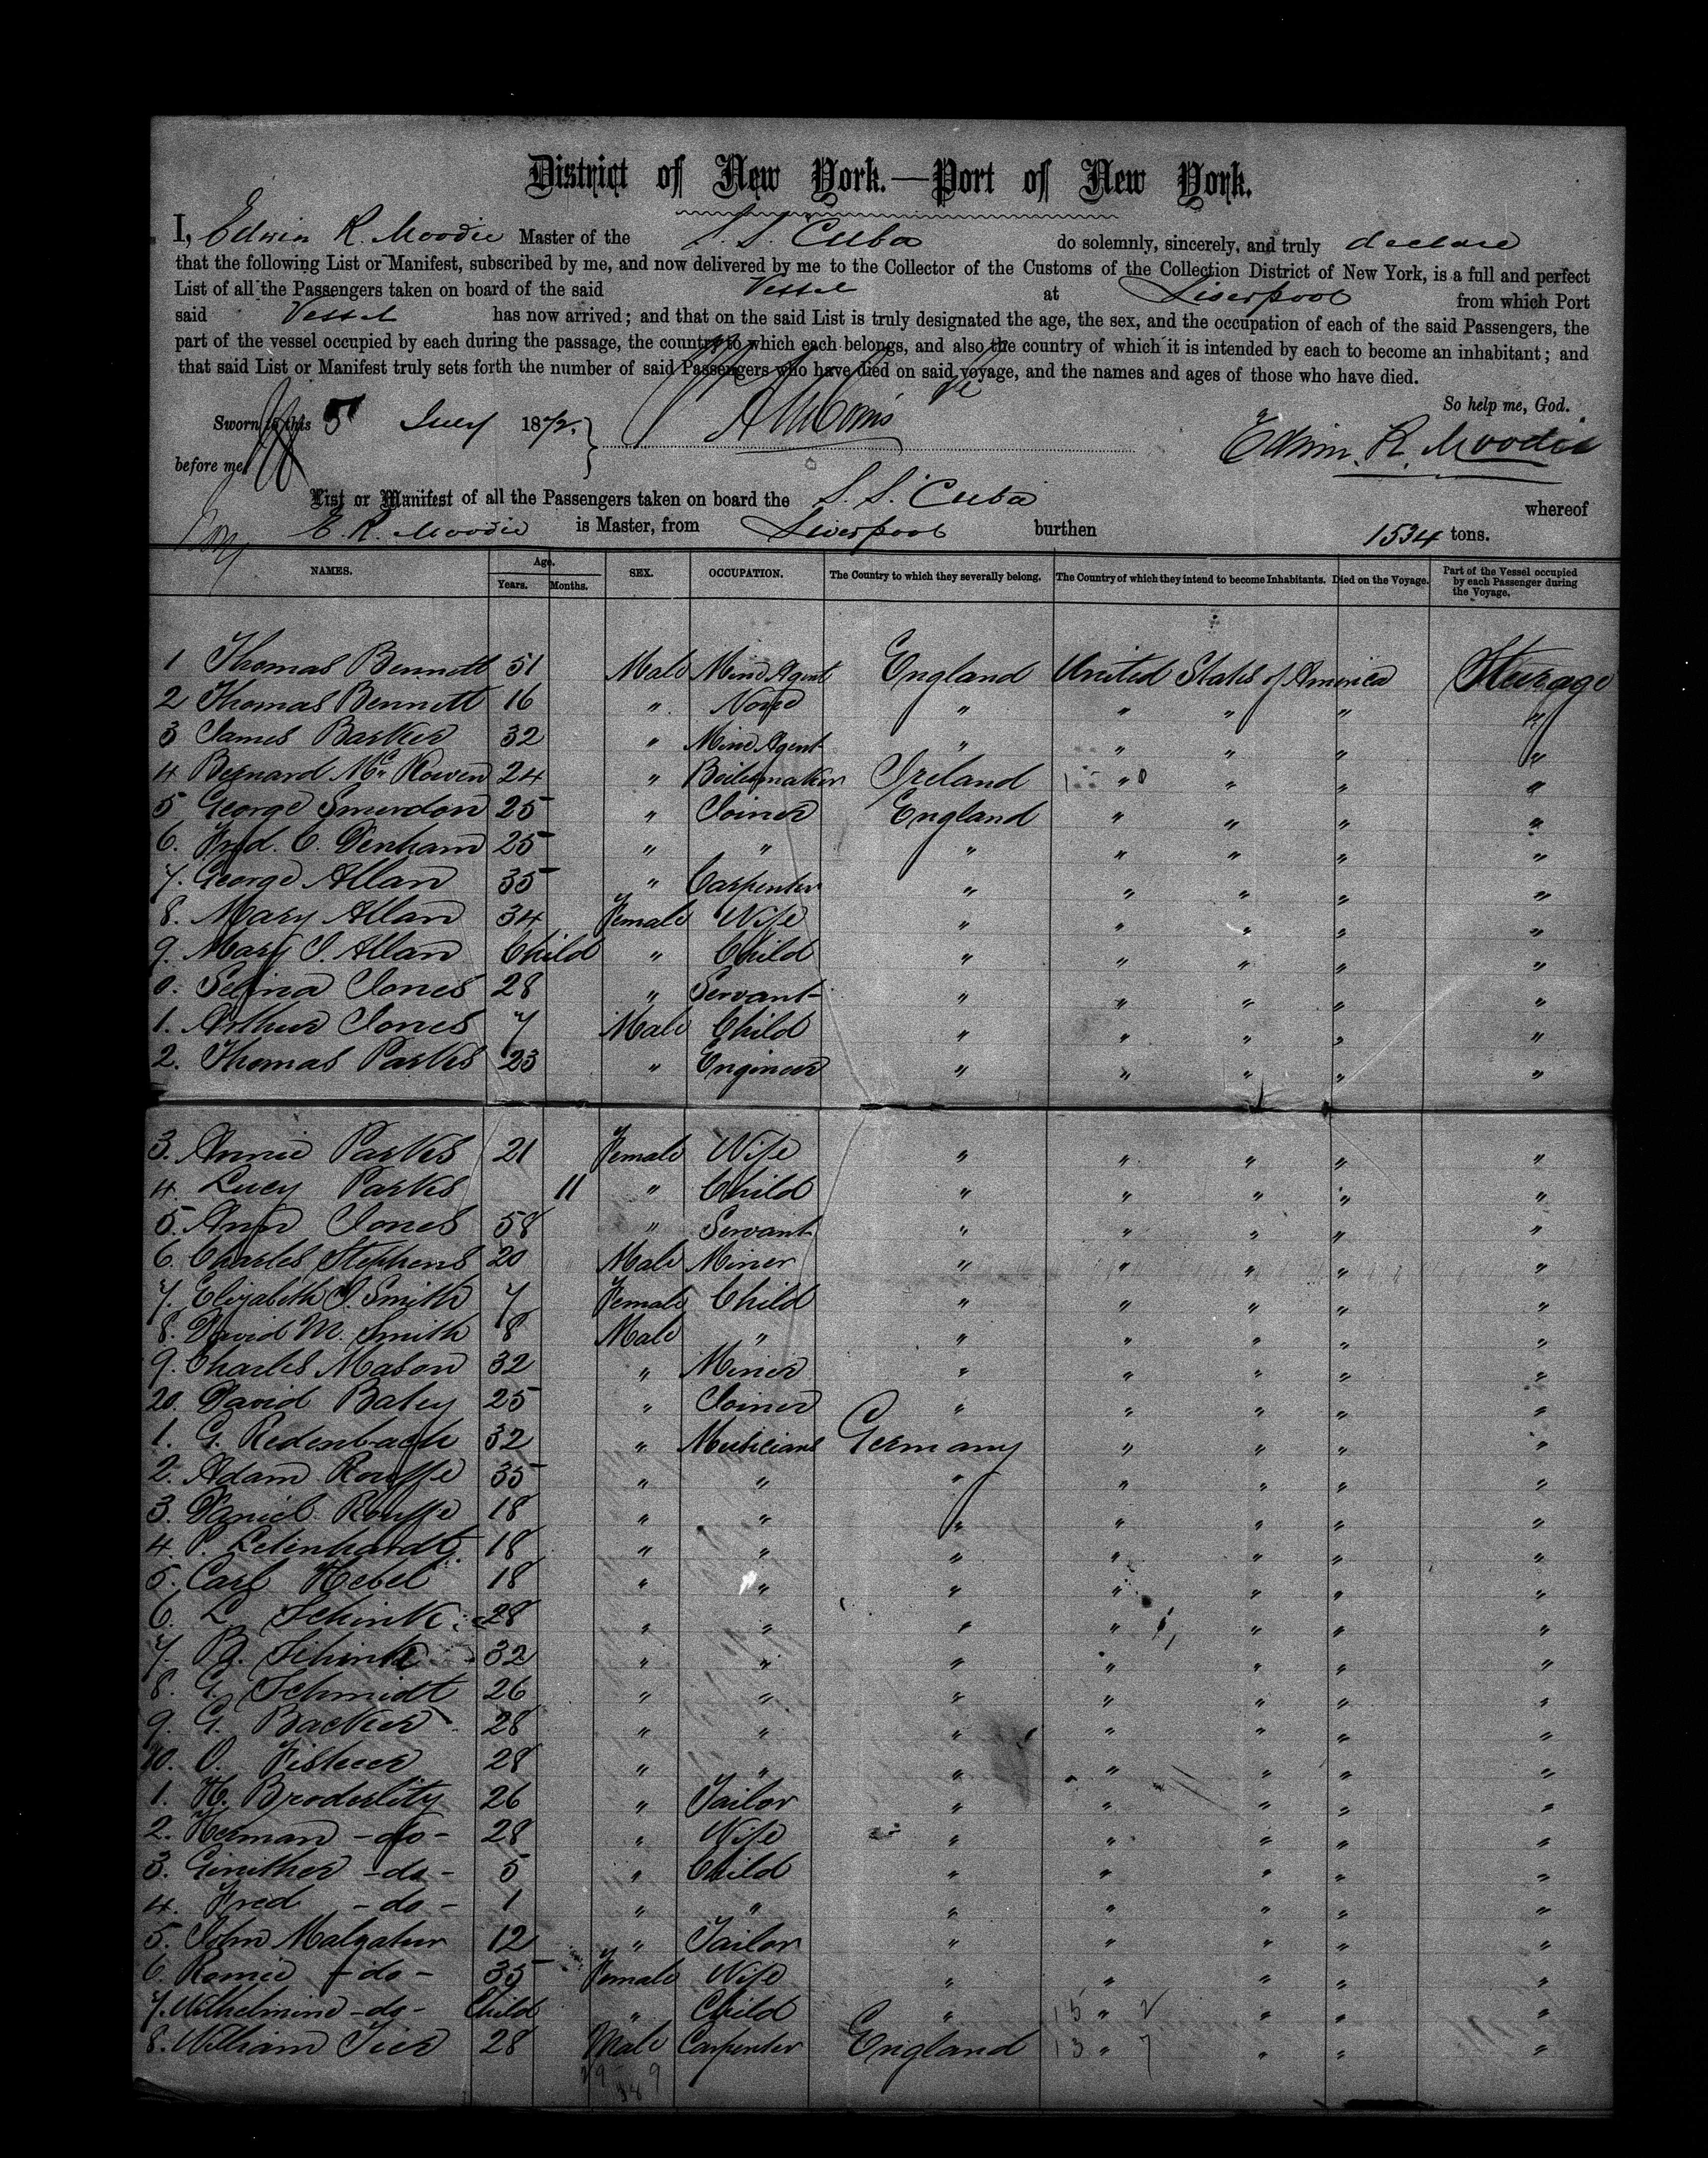 District of New York.—Port of New York.
I, Edwin R. Moodie Master of the S. S. Cuba do solemnly, sincerely, and truly declare
that the following List or Manifest, subscribed by me, and now delivered by me to the Collector of the Customs of the Collection District of New York, is a full and perfect
List of all the Passengers taken on board of the said Vessel at Liverpool from which Port
said Vessel has now arrived; and that on the said List is truly designated the age, the sex, and the occupation of each of the said Passengers, the
part of the vessel occupied by each during the passage, the country to which each belongs, and also the country of which it is intended by each to become an inhabitant; and
that said List or Manifest truly sets forth the number of said Passengers who have died on said voyage, and the names and ages of those who have died.
So help me, God.
Sworn to this 5 July 1872.
Edwin. R. Moodie
before me
List or Manifest of all the Passengers taken on board the S. S. Cuba whereof
E. R. Moodie is Master, from Liverpool burthen 1534 tons.
NAMES. Age. Years. Months. SEX. OCCUPATION. The Country to which they severally belong. The Country of which they intend to become Inhabitants. Died on the Voyage. Part of the Vessel occupied by each Passenger during the Voyage.
1 Thomas Bennett 51 Male Mine Agent England United States of America Steerage
2 Thomas Bennett 16 " None " " " " "
3 James Barker 32 " Mine Agent " " " " "
4 Bernard McKowen 24 " Boilermaker Ireland " " " "
5 George Smerdon 25 " Joiner England " " " "
6. Fred. C. Denham 25 " " " " " " "
7. George Allan 35 " Carpenter " " " " "
8. Mary Allan 34 Female Wife " " " " "
9. Mary J. Allan Child " Child " " " " "
0. Selina Jones 28 " Servant " " " " "
1. Arthur Jones 7 Male Child " " " " "
2. Thomas Parks 23 " Engineer " " " " "
3. Annie Parks 21 Female Wife " " " " "
4. Lucy Parks 11 " Child " " " " "
5. Ann Jones 58 " Servant " " " " "
6. Charles Stephens 20 Male Miner " " " " "
7. Elizabeth J. Smith 7 Female Child " " " " "
8. David M. Smith 8 Male " " " " " "
9. Charles Mason 32 " Miner " " " " "
20. David Baley 25 " Joiner " " " " "
1. G. Redenbach 32 " Musicians Germany " " " "
2. Adam Rouffe 35 " " " " " " "
3. Daniel Rouffe 18 " " " " " " "
4. P. Leinhardt 18 " " " " " " "
5. Carl Hebel 18 " " " " " " "
6. L. Schink 28 " " " " " " "
7. B. Schink 32 " " " " " " "
8. G. Schmidt 26 " " " " " " "
9. G. Backer 28 " " " " " " "
30. O. Fisheer 28 " " " " " " "
1. H. Broderlity 26 " Tailor " " " " "
2. Herman -do- 28 " Wife " " " " "
3. Ginither -do- 5 " Child " " " " "
4. Fred -do- 1 " " " " " " "
5. John Malzatur 12 " Tailor " " " " "
6. Romie -do- 35 Female Wife " " " " "
7. Wilhelmine -do- Child " Child " " " " "
8. William Tier 28 Male Carpenter England " " " "